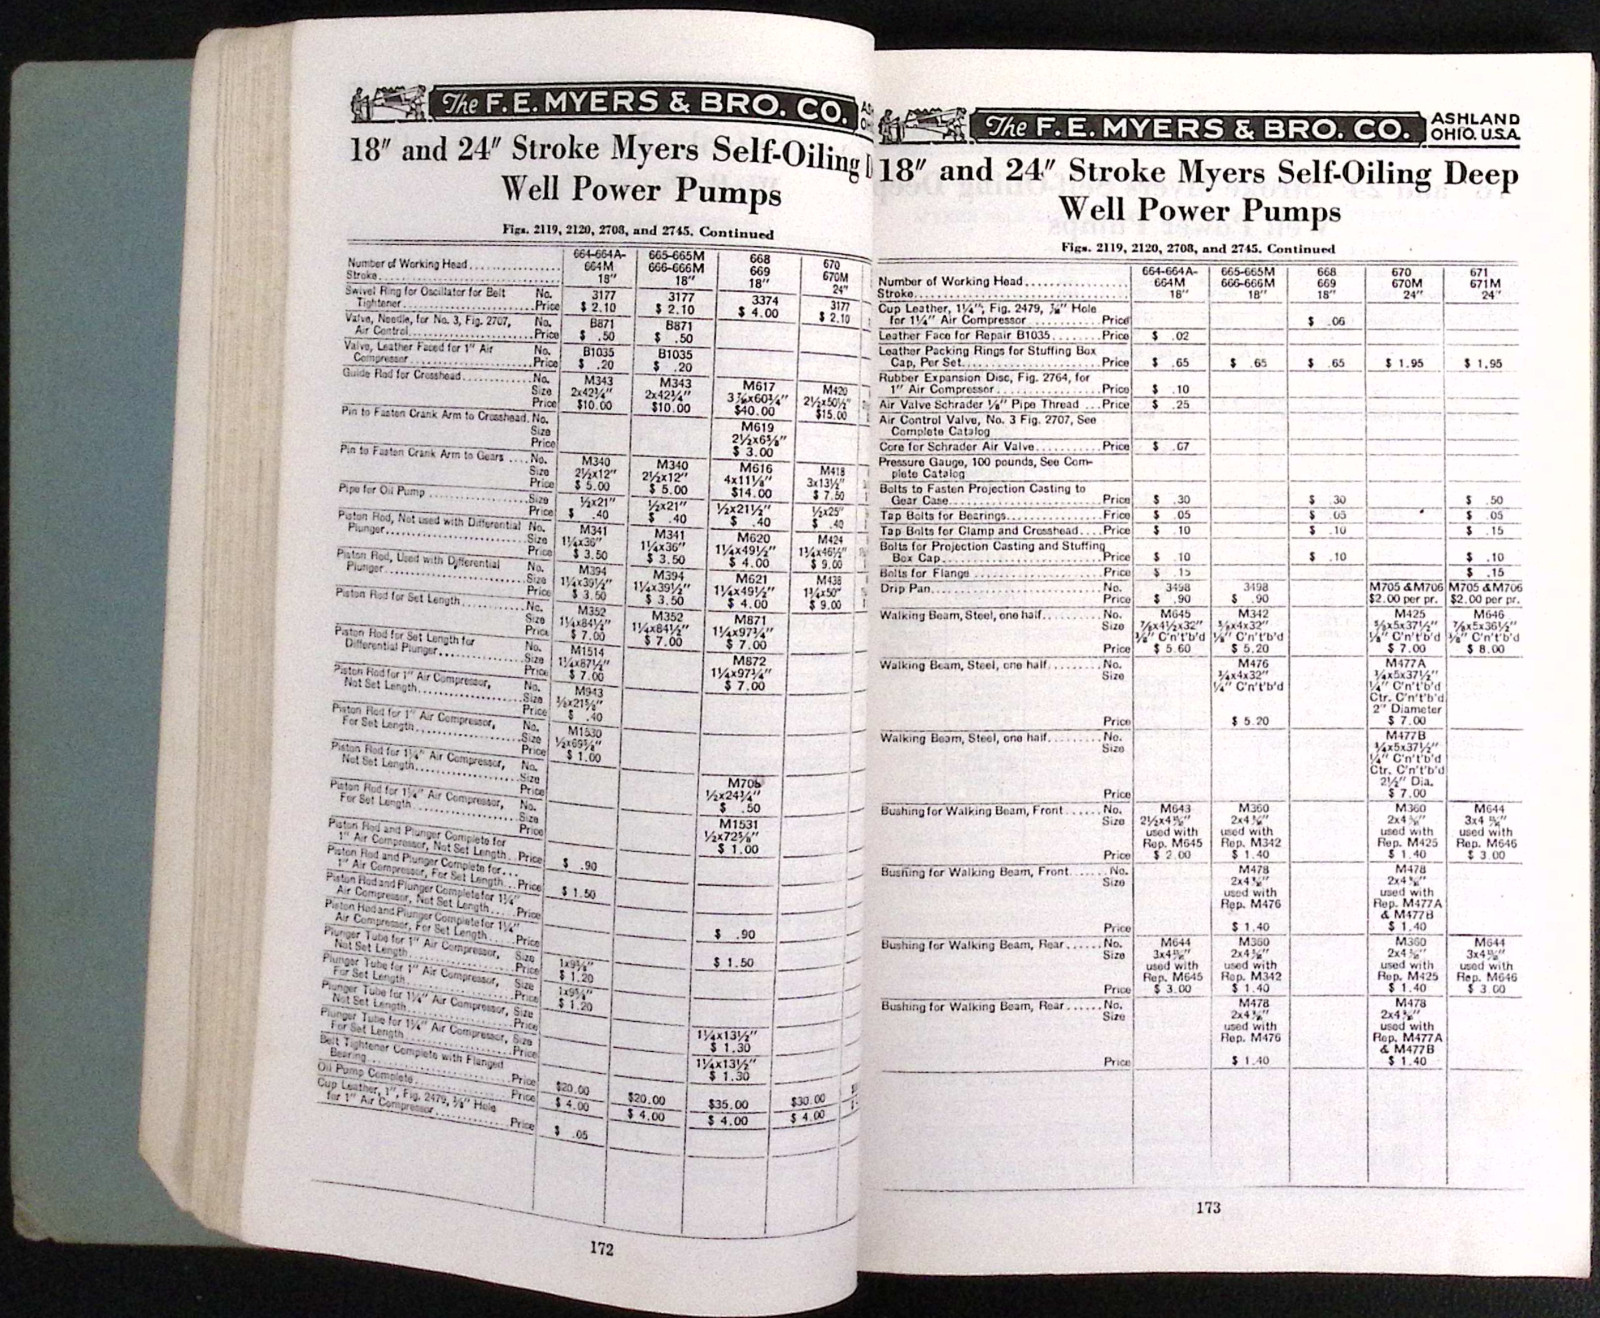 The F. E. MYERS & BRO. CO.
18" and 24" Stroke Myers Self-Oiling
Well Power Pumps
Figs. 2119, 2120, 2708, and 2745. Continued
Number of Working Head 664-664A-664M 665-665M 666-666M 668 669 670 670M
Stroke 18" 18" 18" 24"
Swivel Ring for Oscillator for Belt No. 3177 3177 3374 3177
Tightener Price $ 2.10 $ 2.10 $ 4.00 $ 2.10
Valve, Needle, for No. 3, Fig. 2707, No. B871 B871
Air Control Price $ .50 $ .50
Valve, Leather Faced for 1" Air No. B1035 B1035
Compressor Price $ .20 $ .20
Guide Rod for Crosshead No. M343 M343 M617 M420
Size 2x42¼" 2x42¼" 2½x50½"
Price $10.00 $10.00 $40.00 $15.00
Pin to Fasten Crank Arm to Crosshead. No. M619
Size 2½x6⅝"
Price $ 3.00
Pin to Fasten Crank Arm to Gears No. M340 M340 M616 M418
Size 2½x12" 2½x12" 4x11⅛" 3x13½"
Price $ 5.00 $ 5.00 $14.00 $ 7.50
Pipe for Oil Pump Size ½x21" ½x21" ½x21½" ½x25"
Price $ .40 $ .40 $ .40 $ .40
Piston Rod, Not used with Differential No. M341 M341 M620 M424
Plunger Size 1¼x36" 1¼x36" 1¼x49½" 1¾x46½"
Price $ 3.50 $ 3.50 $ 4.00 $ 9.00
Piston Rod, Used with Differential No. M394 M394 M621 M438
Plunger Size 1¼x39½" 1¼x39½" 1¼x49½" 1¾x50"
Price $ 3.50 $ 3.50 $ 4.00 $ 9.00
Piston Rod for Set Length No. M352 M352 M871
Size 1¼x84½" 1¼x84½" 1¼x97¾"
Price $ 7.00 $ 7.00 $ 7.00
Piston Rod for Set Length for No. M1514 M872
Differential Plunger Size 1¼x87½" 1¼x97¾"
Price $ 7.00 $ 7.00
Piston Rod for 1" Air Compressor, No. M943
Not Set Length Size
Price $ .40
Piston Rod for 1" Air Compressor, No. M1530
For Set Length Size
Price $ 1.00
Piston Rod for 1¼" Air Compressor, No.
Not Set Length Size ½x24¾"
Price $ .50
Piston Rod for 1¼" Air Compressor, No. M1531
For Set Length Size ½x72⅝"
Price $ 1.00
Piston Rod and Plunger Complete for
1" Air Compressor, Not Set Length Price $ .90
Piston Rod and Plunger Complete for
1" Air Compressor, For Set Length Price $ 1.50
Piston Rod and Plunger Complete for 1¼"
Air Compressor, Not Set Length Price $ .90
Piston Rod and Plunger Complete for 1¼"
Air Compressor, For Set Length Price $ 1.50
Plunger Tube for 1" Air Compressor, Size
Not Set Length Price $ 1.20
Plunger Tube for 1" Air Compressor, Size
For Set Length Price $ 1.20
Plunger Tube for 1¼" Air Compressor, Size 1¼x13½"
Not Set Length Price $ 1.30
Plunger Tube for 1¼" Air Compressor, Size 1¼x13½"
For Set Length Price $ 1.30
Belt Tightener Complete with Flanged
Bearing Price $20.00 $20.00 $35.00 $30.00
Oil Pump Complete Price $ 4.00 $ 4.00 $ 4.00 $ 4.00
Cup Leather, 1", Fig. 2479, Hole
for 1" Air Compressor Price $ .05
172
The F. E. MYERS & BRO. CO. ASHLAND
OHIO. U.S.A.
18" and 24" Stroke Myers Self-Oiling Deep
Well Power Pumps
Figs. 2119, 2120, 2708, and 2745. Continued
Number of Working Head 664-664A-664M 665-665M 666-666M 668 669 670 670M 671 671M
Stroke 18" 18" 18" 24" 24"
Cup Leather, 1¼", Fig. 2479, Hole
for 1¼" Air Compressor Price $ .06
Leather Face for Repair B1035 Price $ .02
Leather Packing Rings for Stuffing Box
Cap, Per Set Price $ .65 $ .65 $ .65 $ 1.95 $ 1.95
Rubber Expansion Disc, Fig. 2764, for
1" Air Compressor Price $ .10
Air Valve Schrader ⅛" Pipe Thread Price $ .25
Air Control Valve, No. 3 Fig. 2707, See
Complete Catalog
Core for Schrader Air Valve Price $ .07
Pressure Gauge, 100 pounds, See Com-
plete Catalog
Bolts to Fasten Projection Casting to
Gear Case Price $ .30 $ .30 $ .50
Tap Bolts for Bearings Price $ .05 $ .05 $ .05
Tap Bolts for Clamp and Crosshead Price $ .10 $ .10 $ .15
Bolts for Projection Casting and Stuffing
Box Cap Price $ .10 $ .10 $ .10
Bolts for Flange Price $ .15 $ .15
Drip Pan No. 3498 3498 M705 & M706 M705 & M706
Price $ .90 $ .90 $2.00 per pr. $2.00 per pr.
Walking Beam, Steel, one half No. M645 M342 M425 M646
Size C'n't'b'd C'n't'b'd C'n't'b'd C'n't'b'd
Price $ 5.60 $ 5.20 $ 7.00 $ 8.00
Walking Beam, Steel, one half No. M476 M477A
Size ¼" C'n't'b'd ¼" C'n't'b'd
Ctr. C'n't'b'd
2" Diameter
Price $ 5.20 $ 7.00
Walking Beam, Steel, one half No. M477B
Size ¼" C'n't'b'd
Ctr. C'n't'b'd
2½" Dia.
Price $ 7.00
Bushing for Walking Beam, Front No. M643 M360 M360 M644
Size
used with used with used with used with
Rep. M645 Rep. M342 Rep. M425 Rep. M646
Price $ 2.00 $ 1.40 $ 1.40 $ 3.00
Bushing for Walking Beam, Front No. M478 M478
Size
used with used with
Rep. M476 Rep. M477A
& M477B
Price $ 1.40 $ 1.40
Bushing for Walking Beam, Rear No. M644 M360 M360 M644
Size
used with used with used with used with
Rep. M645 Rep. M342 Rep. M425 Rep. M646
Price $ 3.00 $ 1.40 $ 1.40 $ 3.00
Bushing for Walking Beam, Rear No. M478 M478
Size
used with used with
Rep. M476 Rep. M477A
& M477B
Price $ 1.40 $ 1.40
173